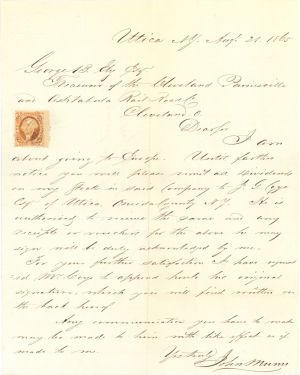 Utica NY. Aug. 21. 1865
George B. Ely Esq
Treasurer of the Cleveland Painesville
and Ashtabula Rail Road Co
Cleveland O
Dear Sir
I am
about going to Europe. Until further
notice you will please remit all dividends
on my stock in said Company to J. G.
Esq of Utica, Oneida County N.Y. He is
authorized to receive the same and any
receipts or vouchers for the above he may
sign will be duly acknowledged by me.
For your further satisfaction I have request
ed Mr. to append hereto his original
signature, which you will find written on
the back hereof
Any communication you have to make
may be made to him with like effect as if
made to me.
Yrs truly
John Munn